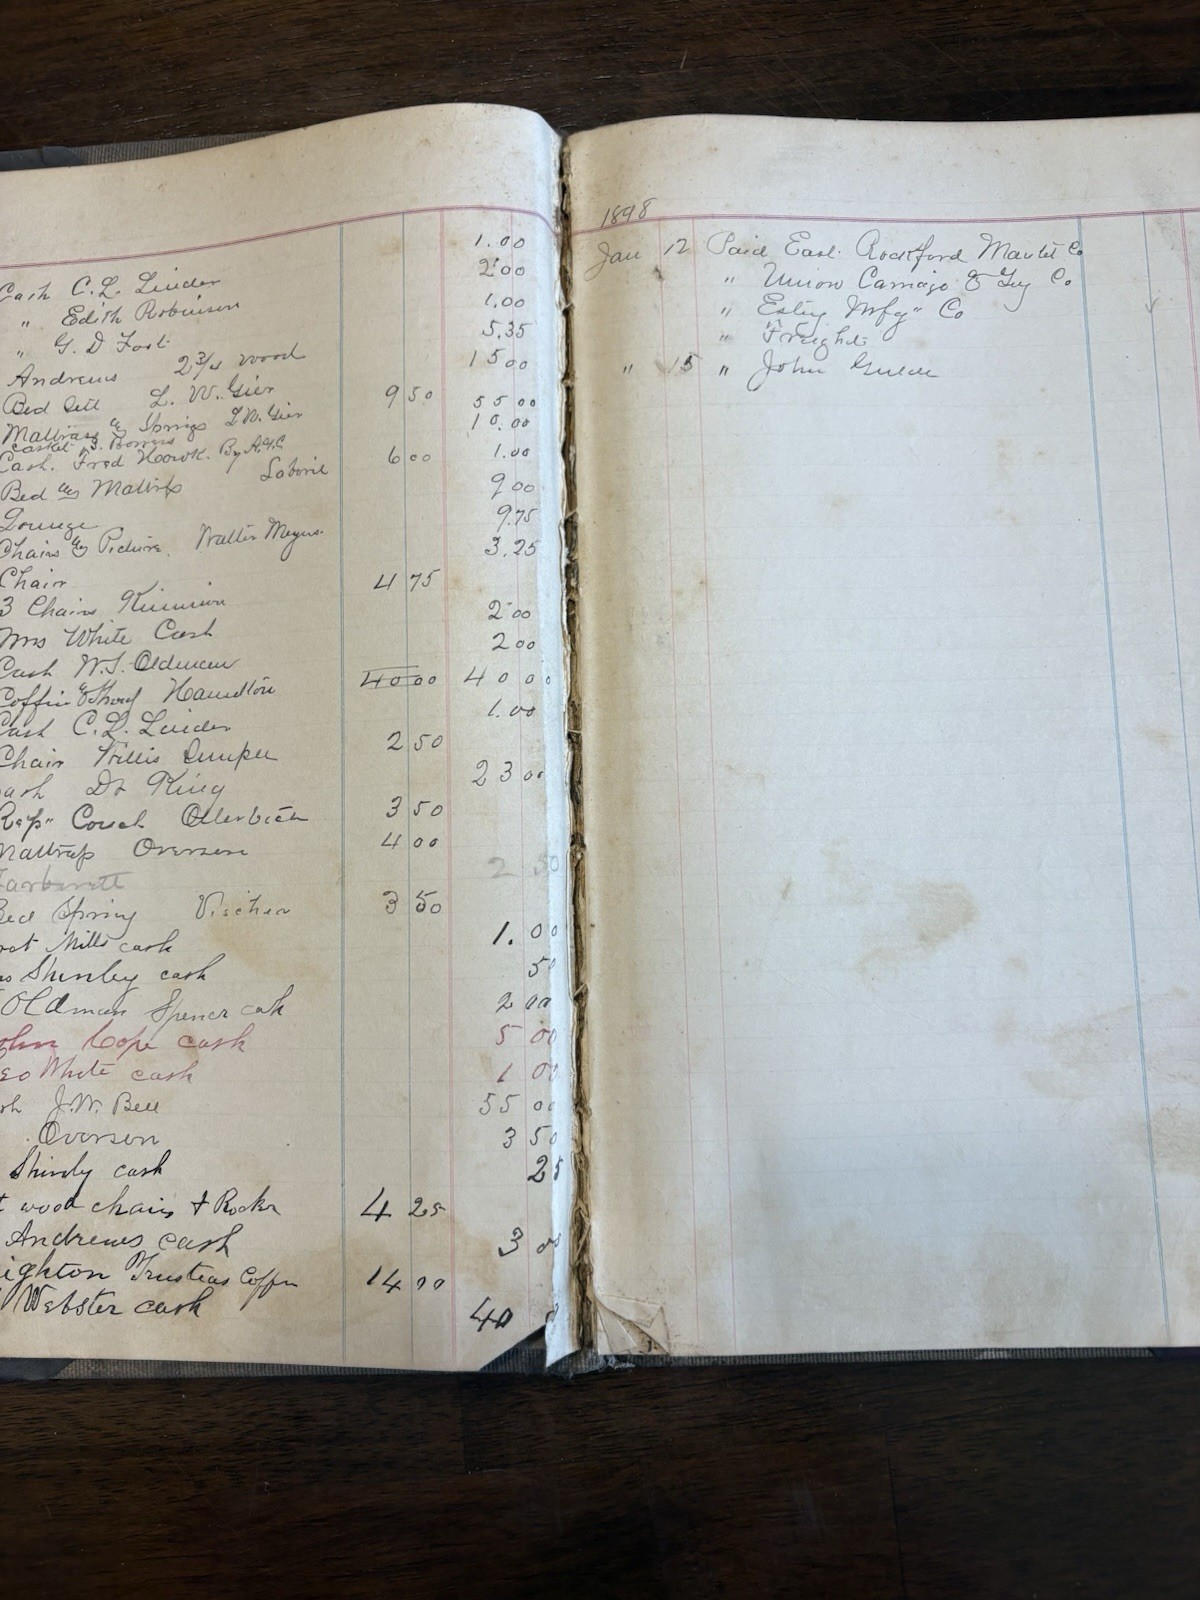 1.00
Cash C.L. Linder 2.00
" Edith Robinson 1.00
" G. D Fost 5.35
Andrews 2 3/4 wood 15 00
Bed Sett L. W. Gier 9 50 55 00
Mattrass & Springs L.W. Gier 10.00
casket S. Bowers
Cash. Fred Houk. By A.H.C. 6 00 1.00
Bed & Mattrfs 9 00
Lounge 9.75
Chairs & Picture. Walter Meyers 3.25
Chair 4 75
3 Chairs 2 00
Mrs White Cash 2 00
Cash W.S. Oldman 40 00 40 00
Coffin & Hamilton 1.00
Cash C.L. Linder
Chair Willis 2 50
ash Dr King 23 00
Rep" Couch Otterbien 3 50
Mattrafs Oversen 4 00
2 50
Bed Spring Vischer 3 50
Mills cash 1.00
Shinley cash 50
Oldman Spencer cash 2 00
ohn Cope cash 5 00
eo White cash 1 00
J.W. Bell 55 00
Oversen 3 50
Shinly cash 25
t wood chairs & Rocker 4 25
Andrews cash 3 00
ighton Trusteas Coffin 14 00
Webster cash 40
1898
Jan 12 Paid East Rockford Mantel Co
" Union Carriage & Co
" Estey Mfg" Co
" Freight
" 15 " John